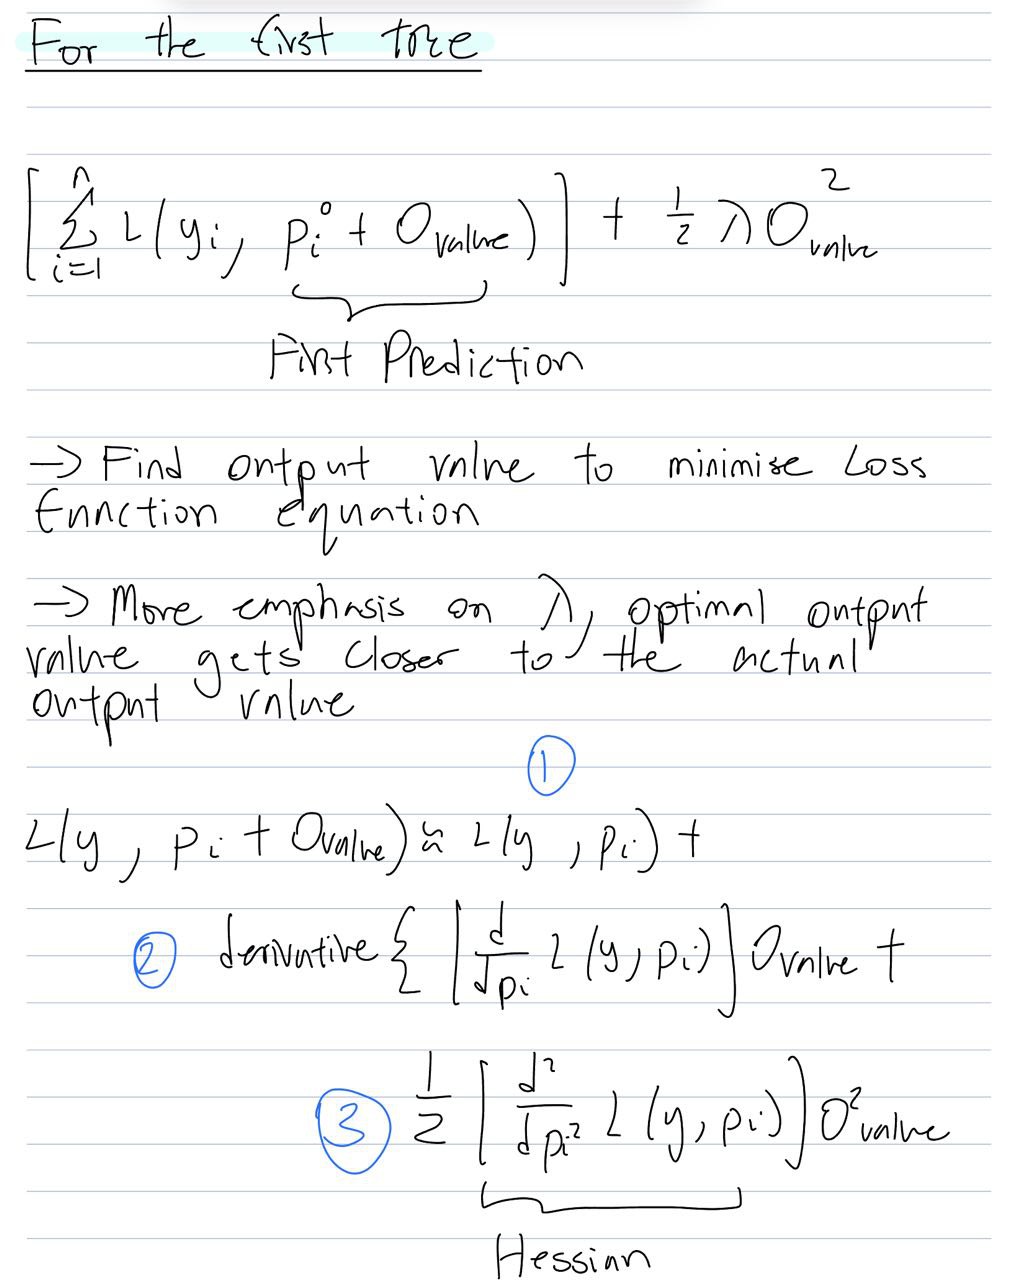 For the first tree
[ n Σ i=1 L(yi, pi° + Ovalue) ] + 1/2 λ O²value
First Prediction
→ Find output value to minimise Loss
function equation
→ More emphasis on λ, optimal output
value gets closer to the actual
output value
①
L(y, pi + Ovalue) ≈ L(y, pi) +
② derivative { [ d/dpi L(y, pi) ] Ovalue +
③ 1/2 [ d²/dpi² L(y, pi) ] O²value
Hessian